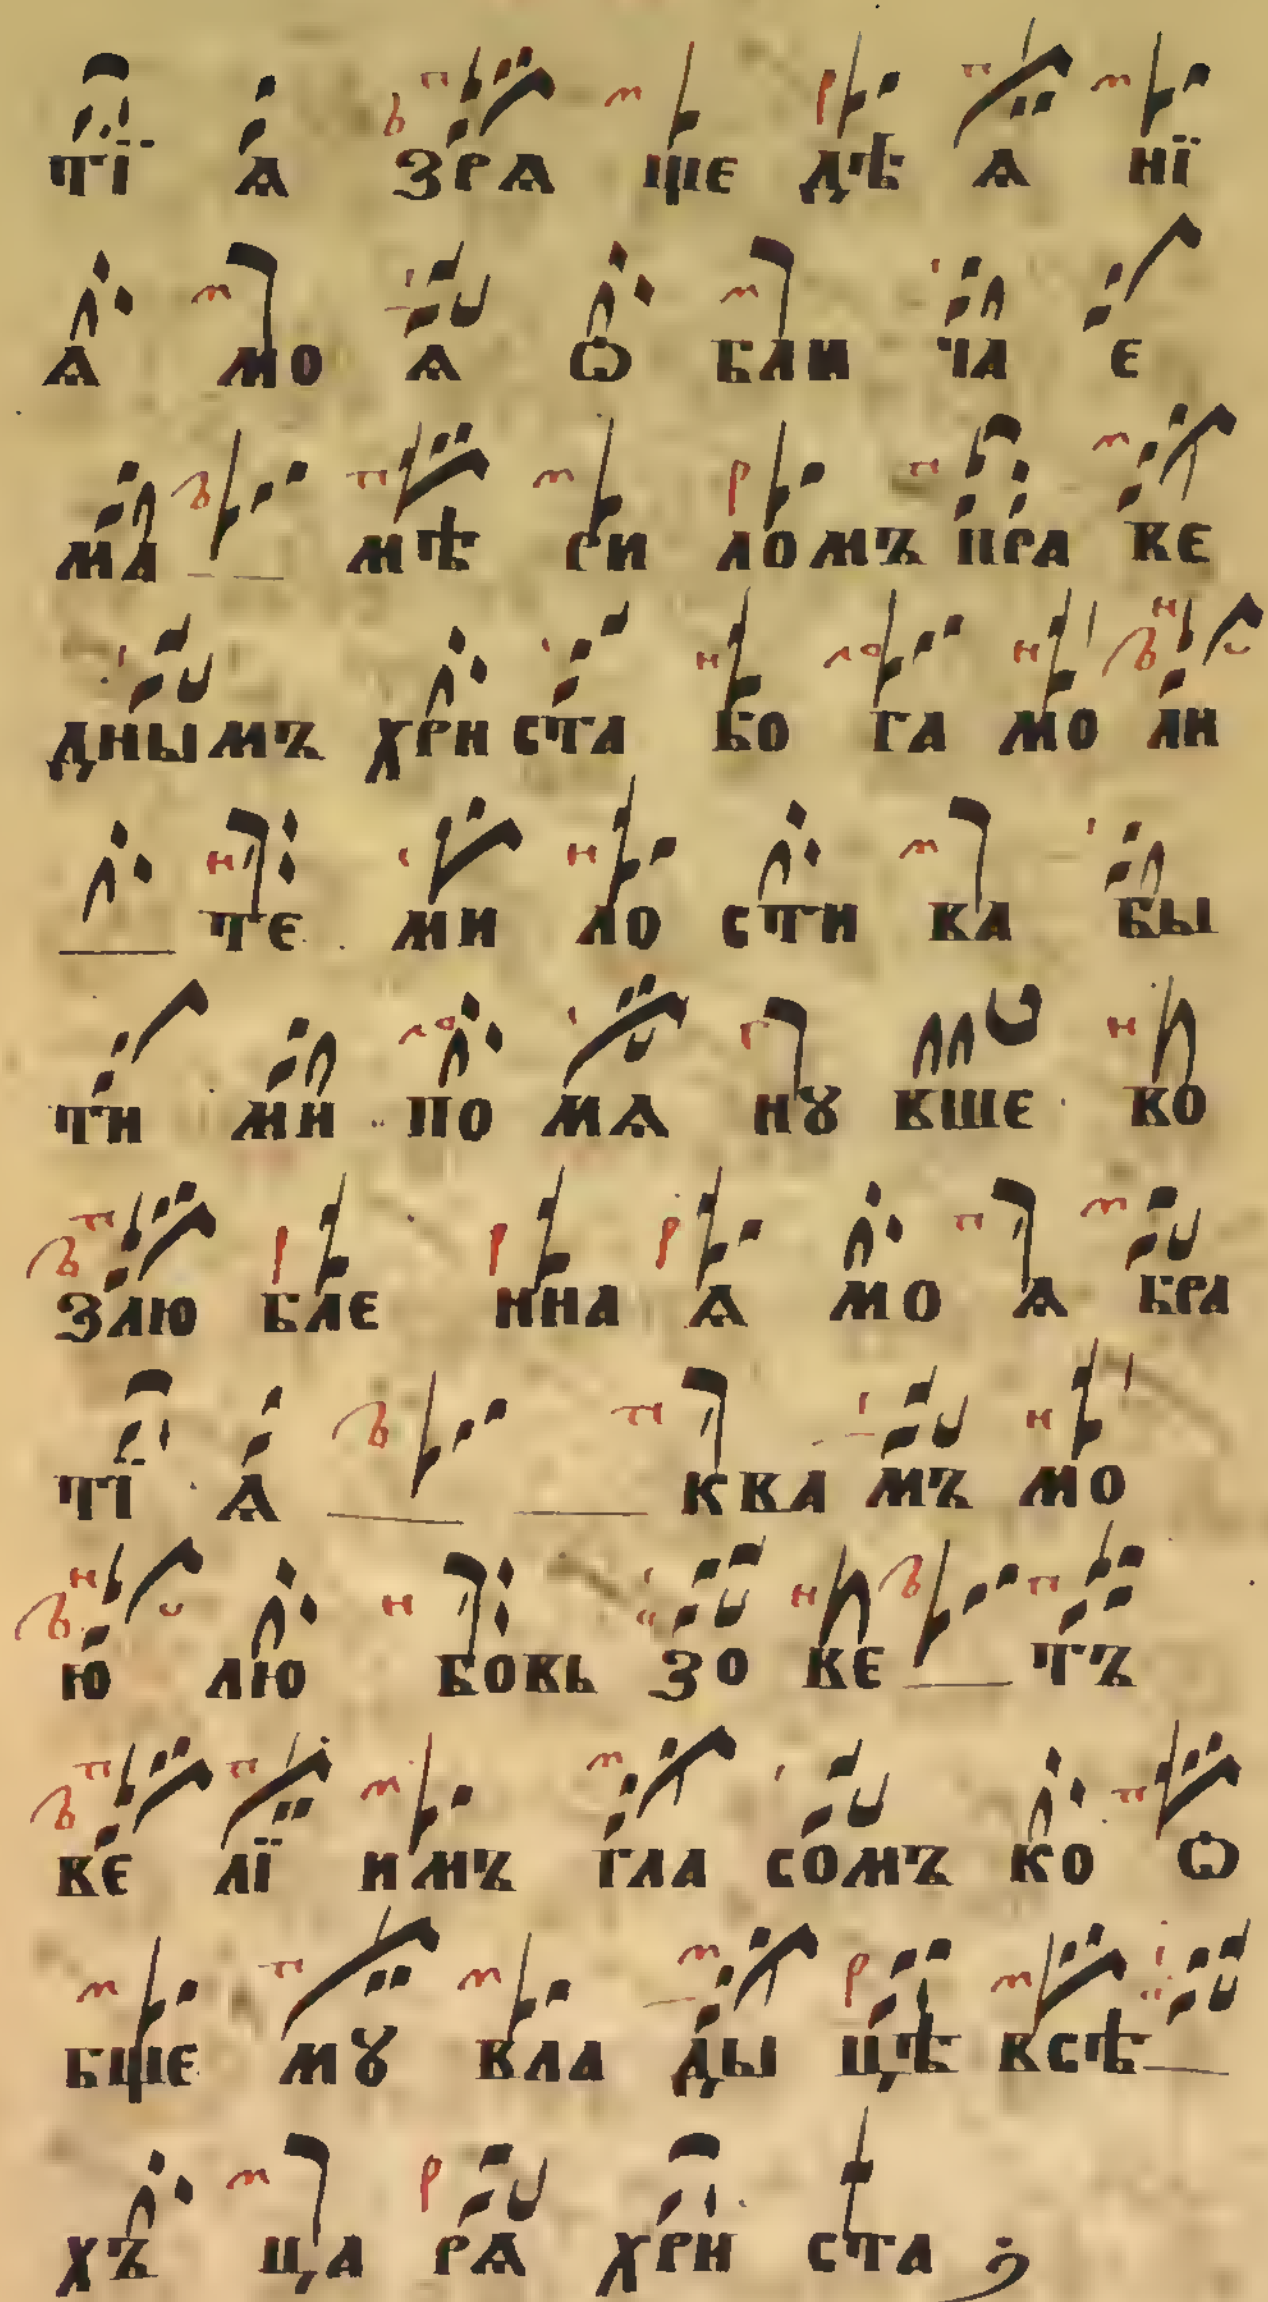 тї ѧ зрѧ ще дѣ ѧ нї
ѧ мо ѧ ѡ бли ча е
ма мѣ ри ломъ пра ве
днымъ хри ста бо га мо ли
те ми ло сти ва бы
ти ми по мѧ нꙋ вше во
злю бле нна ѧ мо ѧ бра
тї ѧ к ва мъ мо
ю лю бовь зо ве тъ
ве лї имъ гла сомъ ко ѡ
бще мꙋ вла ды цѣ всѣ
хъ ца рѧ хри ста